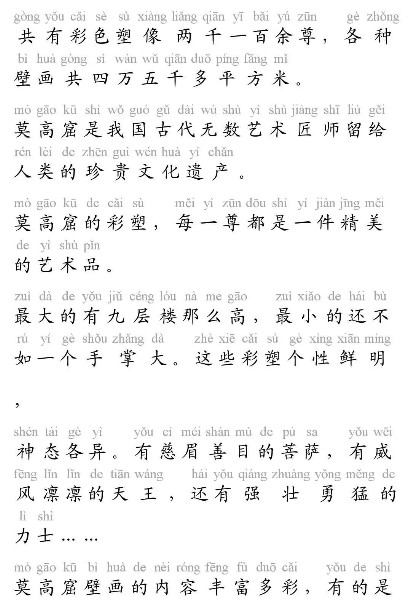 gòng yǒu cǎi sè sù xiàng liǎng qiān yī bǎi yú zūn gè zhǒng
共有彩色塑像两千一百余尊，各种
bì huà gòng sì wàn wǔ qiān duō píng fāng mǐ
壁画共四万五千多平方米。
mò gāo kū shì wǒ guó gǔ dài wú shù yì shù jiàng shī liú gěi
莫高窟是我国古代无数艺术匠师留给
rén lèi de zhēn guì wén huà yí chǎn
人类的珍贵文化遗产。
mò gāo kū de cǎi sù měi yī zūn dōu shì yí jiàn jīng měi
莫高窟的彩塑，每一尊都是一件精美
de yì shù pǐn
的艺术品。
zuì dà de yǒu jiǔ céng lóu nà me gāo zuì xiǎo de hái bù
最大的有九层楼那么高，最小的还不
rú yí gè shǒu zhǎng dà zhè xiē cǎi sù gè xìng xiān míng
如一个手掌大。这些彩塑个性鲜明
，
shén tài gè yì yǒu cí méi shàn mù de pú sa yǒu wēi
神态各异。有慈眉善目的菩萨，有威
fēng lǐn lǐn de tiān wáng hái yǒu qiáng zhuàng yǒng měng de
风凛凛的天王，还有强壮勇猛的
lì shì
力士……
mò gāo kū bì huà de nèi róng fēng fù duō cǎi yǒu de shì
莫高窟壁画的内容丰富多彩，有的是